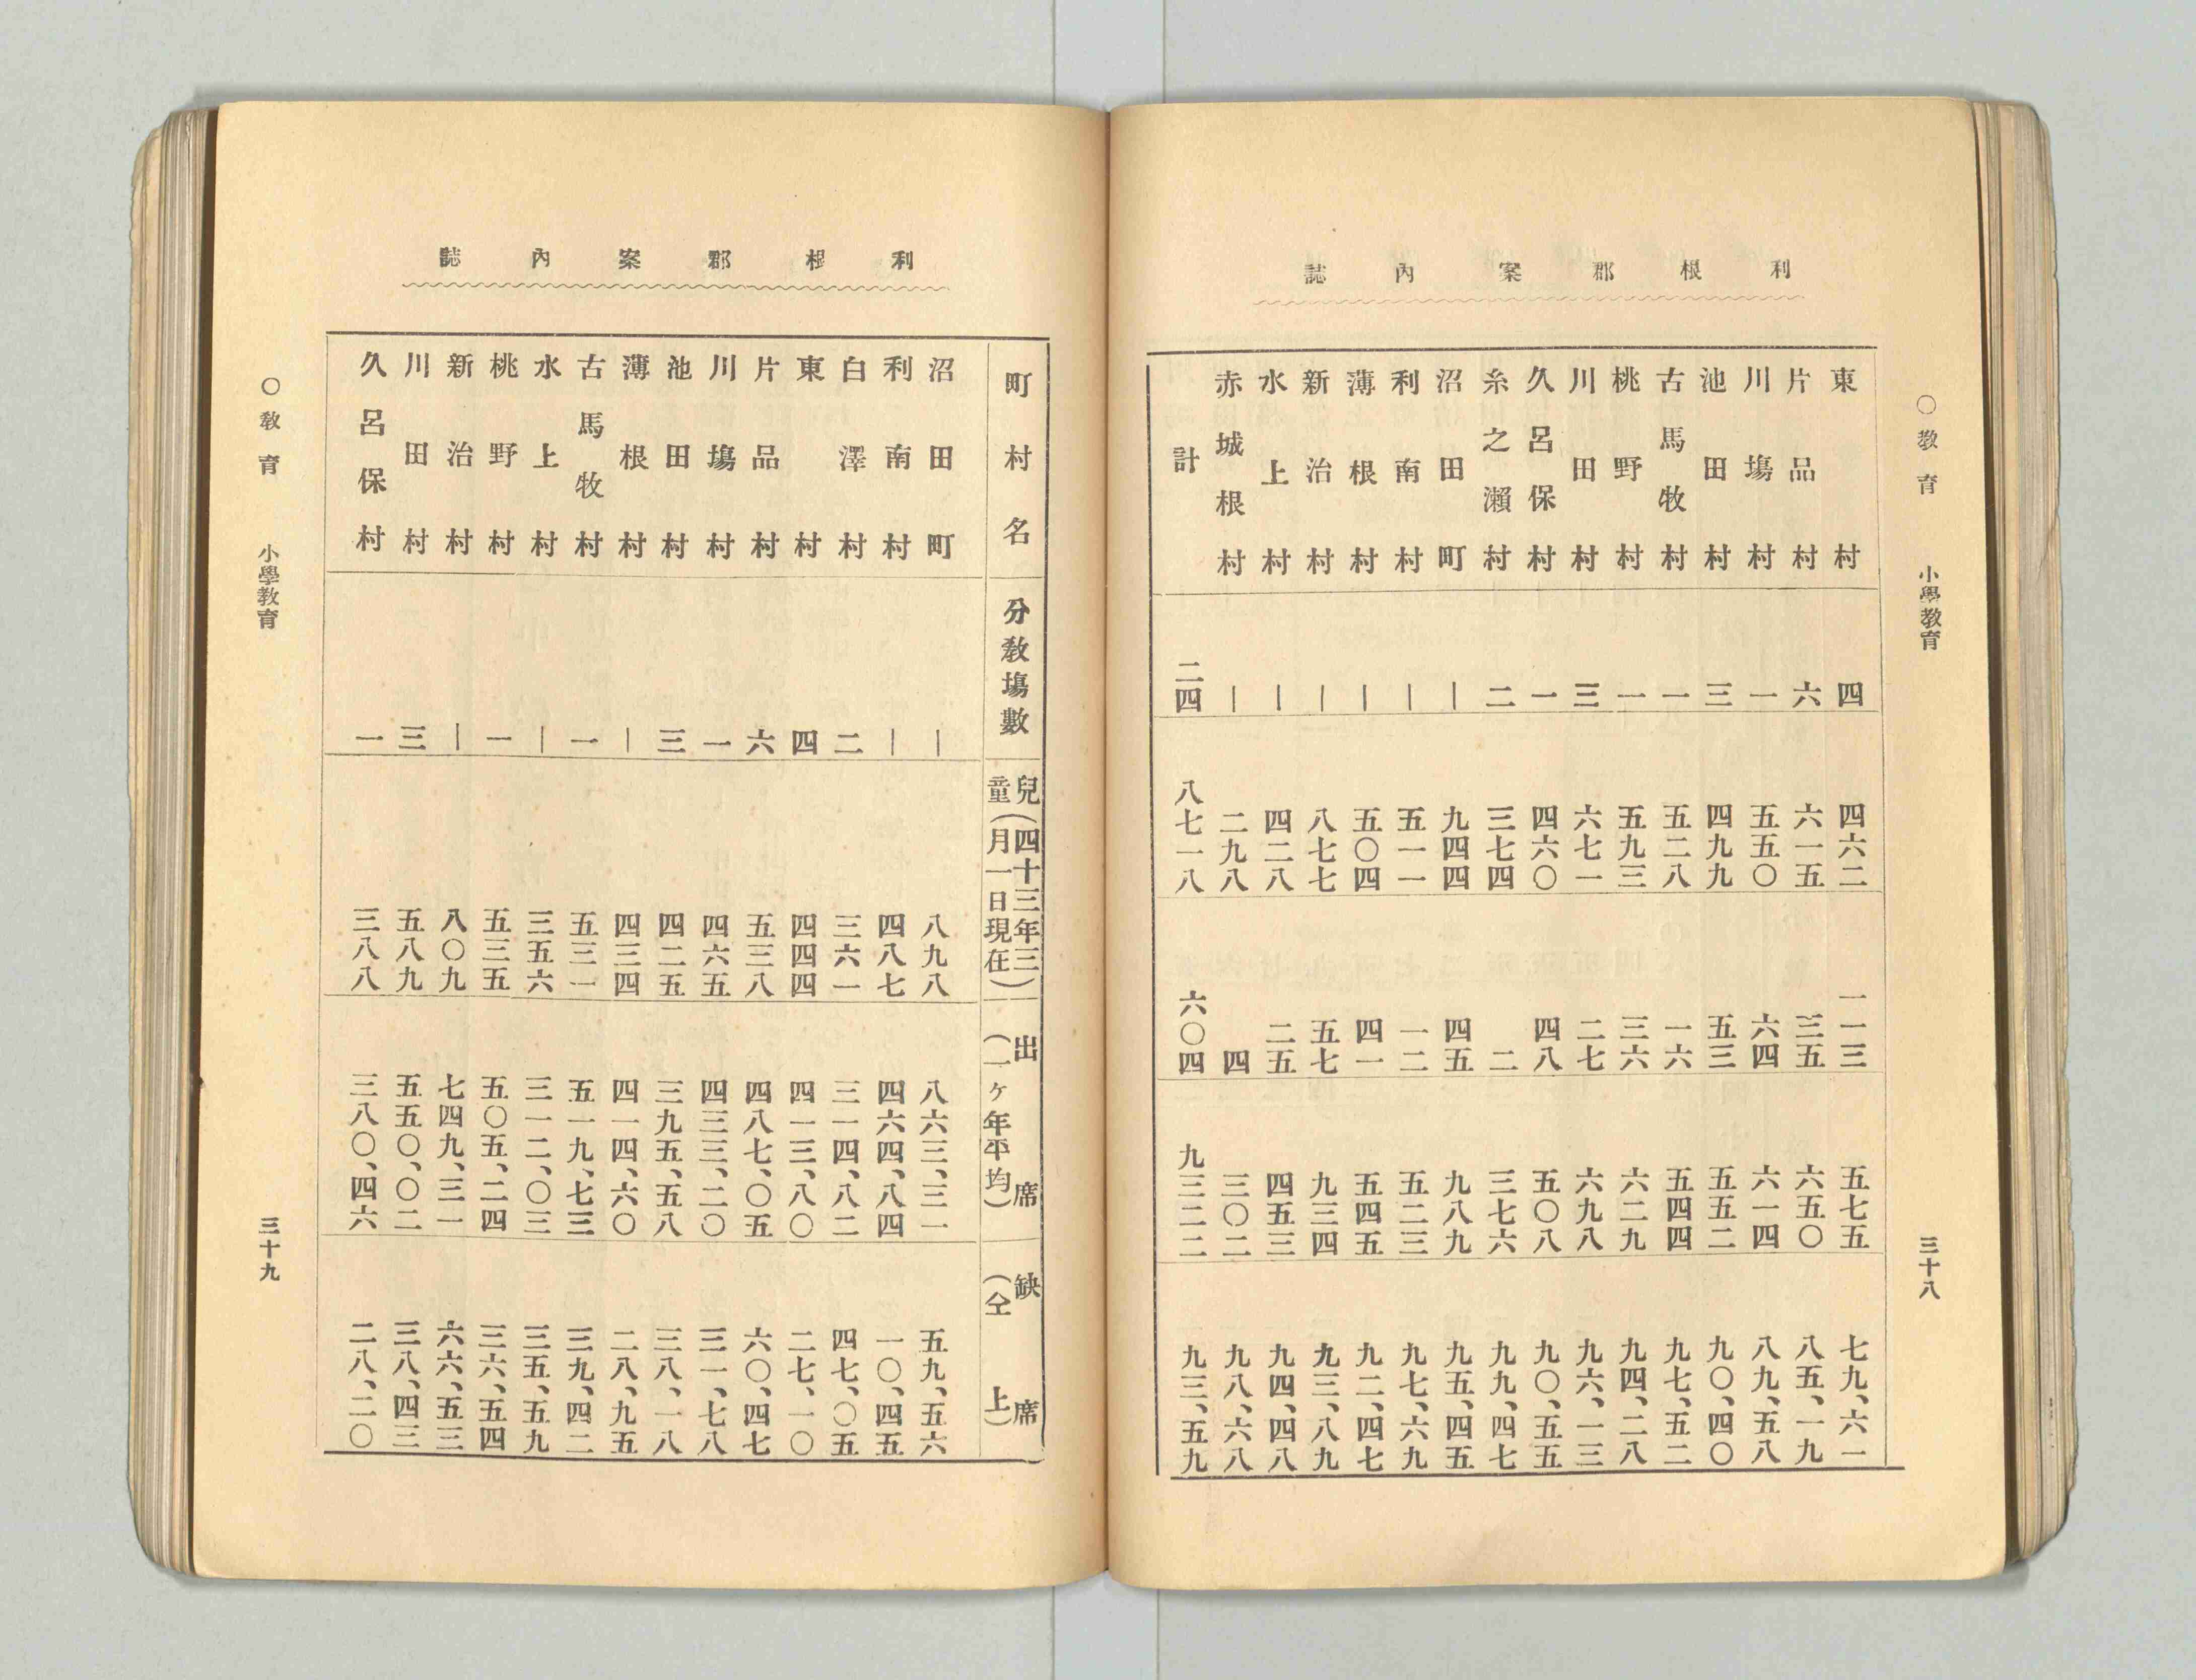 利根郡案內誌
〇教育 小學教育 三十八
東村 四 四六二 一一三 五七五 七九、六一
片品村 六 六一五 三五 六五〇 八五、一九
川塲村 一 五五〇 六四 六一四 八九、五八
池田村 三 四九九 五三 五五二 九〇、四〇
古馬牧村 一 五二八 一六 五四四 九七、五二
桃野村 一 五九三 三六 六二九 九四、二八
川田村 三 六七一 二七 六九八 九六、一三
久呂保村 一 四六〇 四八 五〇八 九〇、五五
糸之瀨村 二 三七四 二 三七六 九九、四七
沼田町 ― 九四四 四五 九八九 九五、四五
利南村 ― 五一一 一二 五二三 九七、六九
薄根村 ― 五〇四 四一 五四五 九二、四七
新治村 ― 八七七 五七 九三四 九三、八九
水上村 ― 四二八 二五 四五三 九四、四八
赤城根村 ― 二九八 四 三〇二 九八、六八
計 二四 八七一八 六〇四 九三二二 九三、五九
利根郡案內誌
町村名 分敎塲數 兒童(四十三年三月一日現在) 出席(一ヶ年平均) 缺席(仝上)
沼田町 ― 八九八 八六三、三一 五九、五六
利南村 ― 四八七 四六四、八四 一〇、四五
白澤村 二 三六一 三一四、八二 四七、〇五
東村 四 四四四 四一三、八〇 二七、一〇
片品村 六 五三八 四八七、〇五 六〇、四七
川塲村 一 四六五 四三三、二〇 三一、七八
池田村 三 四二五 三九五、五八 三八、一八
薄根村 ― 四三四 四一四、六〇 二八、九五
古馬牧村 一 五三一 五一九、七三 三九、四二
水上村 ― 三五六 三一二、〇三 三五、五九
桃野村 一 五三五 五〇五、二四 三六、五四
新治村 ― 八〇九 七四九、三一 六六、五三
川田村 三 五八九 五五〇、〇二 三八、四三
久呂保村 一 三八八 三八〇、四六 二八、二〇
〇敎育 小學教育 三十九